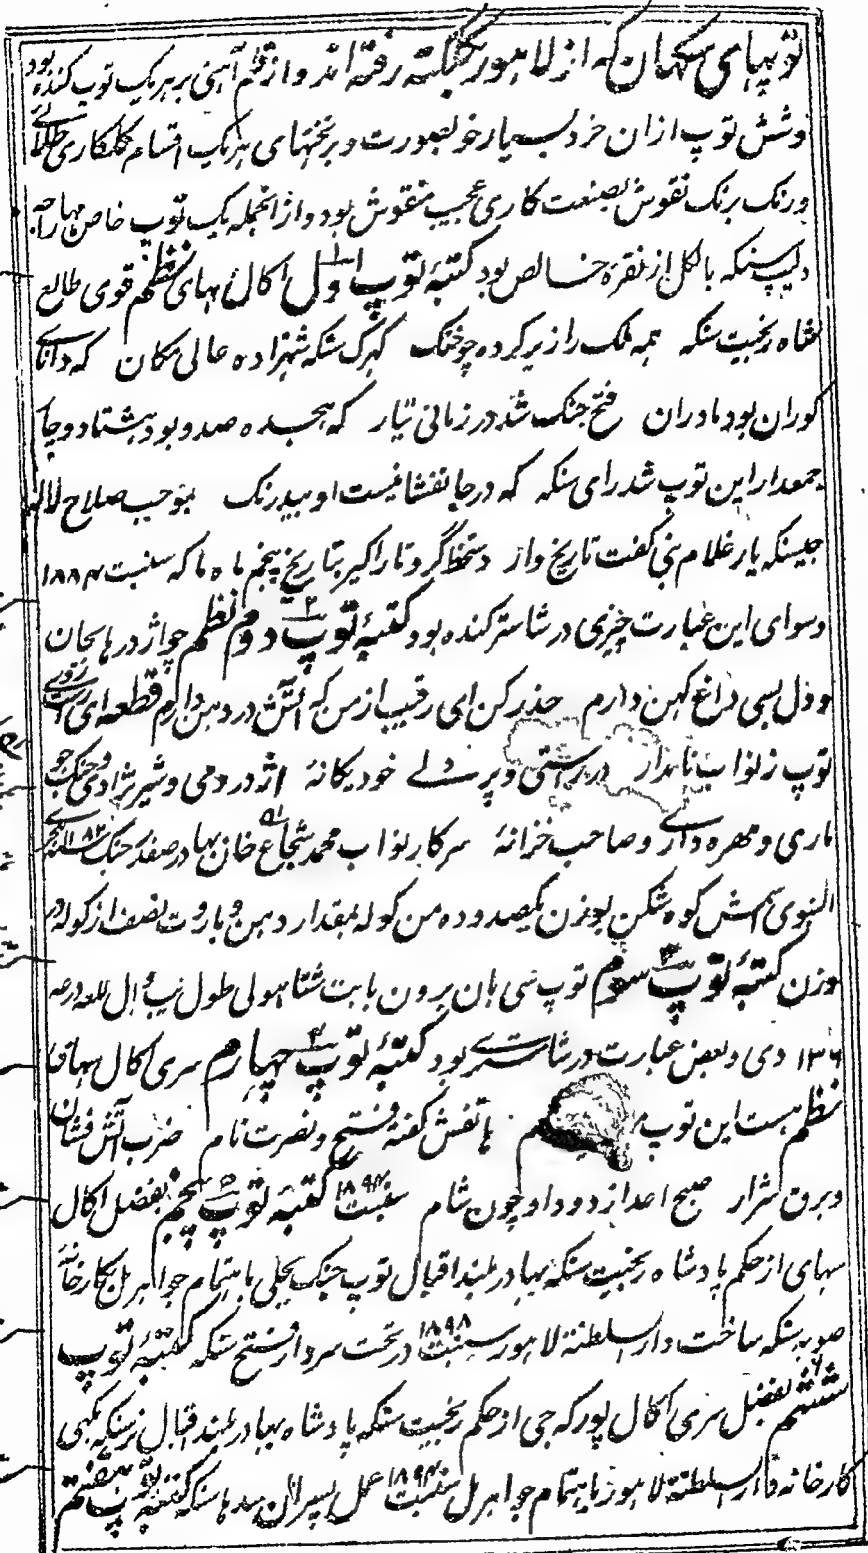 توپہای سکہان کہ از لاہور بکلکتہ رفتہ اند و از قلم آہنی بر ہر یک توپ کندہ بود
وشش توپ ازان خرد بسیار خوبصورت و برتختہای ہر یک اقسام گلکاری طلائے
ورنک برنک نقوش بصنعت کاری عجیب منقوش بود و ازانجملہ یک توپ خاص مہاراجہ
دلیپ سنکہ بالکل از نقرہ خالص بود کتبۂ توپ اول ۱ اکال سہای نظم قوی طالع
شاہ رنجیت سنکہ ہمہ ملک را زیر کردہ چو خنک کہرک سنکہ شہزادہ عالی مکان کہ دانای
دوران بود مادران فتح جنک شد در زمانی تیار کہ ہیجدہ صد و بود ہشتاد و چار
جمعدار این توپ شد رای سنکہ کہ در جانفشانیست او بیدرنک بموجب صلاح لالہ
جیسنکہ یار غلام نبی کفت تاریخ وار دستخط کرو تاراکیر بتاریخ پنجم ماہ ماکہ سنبت ۱۸۸۴
وسوای این عبارت چیزی در شاستر کندہ بود کتبۂ توپ دوم ۲ نظم چو اژدرہا بجان
و دل بسی داغ کہن دارم حذر کن ای رقیب از من کہ آتش در دہن دارم قطعہ ای
توپ ز نواب نامدار در راستی و پر دلے خود یکانۂ اژدر دمی و شیر نژادی و جنک جو
ماری و مہرہ دار و صاحب خزانۂ سرکار نواب محمد شجاع خان بہادر صفدر جنک سنہ ۱۱۸۲ ہجری
النبوی آتش کوہ شکن بوزن یکصد و دہ من کولہ بمقدار دہن و باروت نصف از کولہ در
وزن کتبۂ توپ سوم ۳ توپ سی بان برون بابت شتا ہولی طول
۱۳۶ دی و بعض عبارت در شاستری بود کتبۂ توپ چہارم ۴ سری اکال سہای
نظم ہست این توپ ہاتفش کفتہ فتح و نصرت نام ضرب آتش فشان
وبرق شرار صبح اعدا ز دود او چون شام سنبت ۱۸۹۴ کتبۂ توپ پنجم ۵ بفضل اکال
سہای از حکم پادشاہ رنجیت سنکہ بہادر بلند اقبال توپ جنک بجلی باہتمام جواہرمل بکارخانۂ
صوبہ سنکہ ساخت دار السلطنۃ لاہور سنبت ۱۸۹۸ در تحت سردار فتح سنکہ کتبۂ توپ
ششم بفضل سری اکال پورکہ جی از حکم رنجیت سنکہ پادشاہ بہادر بلند اقبال نرسنکہ مکہی
کارخانہ دار السلطنۃ لاہور باہتمام جواہرمل سنبت ۱۸۹۴ عمل پسران سدہا سنکہ کتبۂ توپ ہفتم